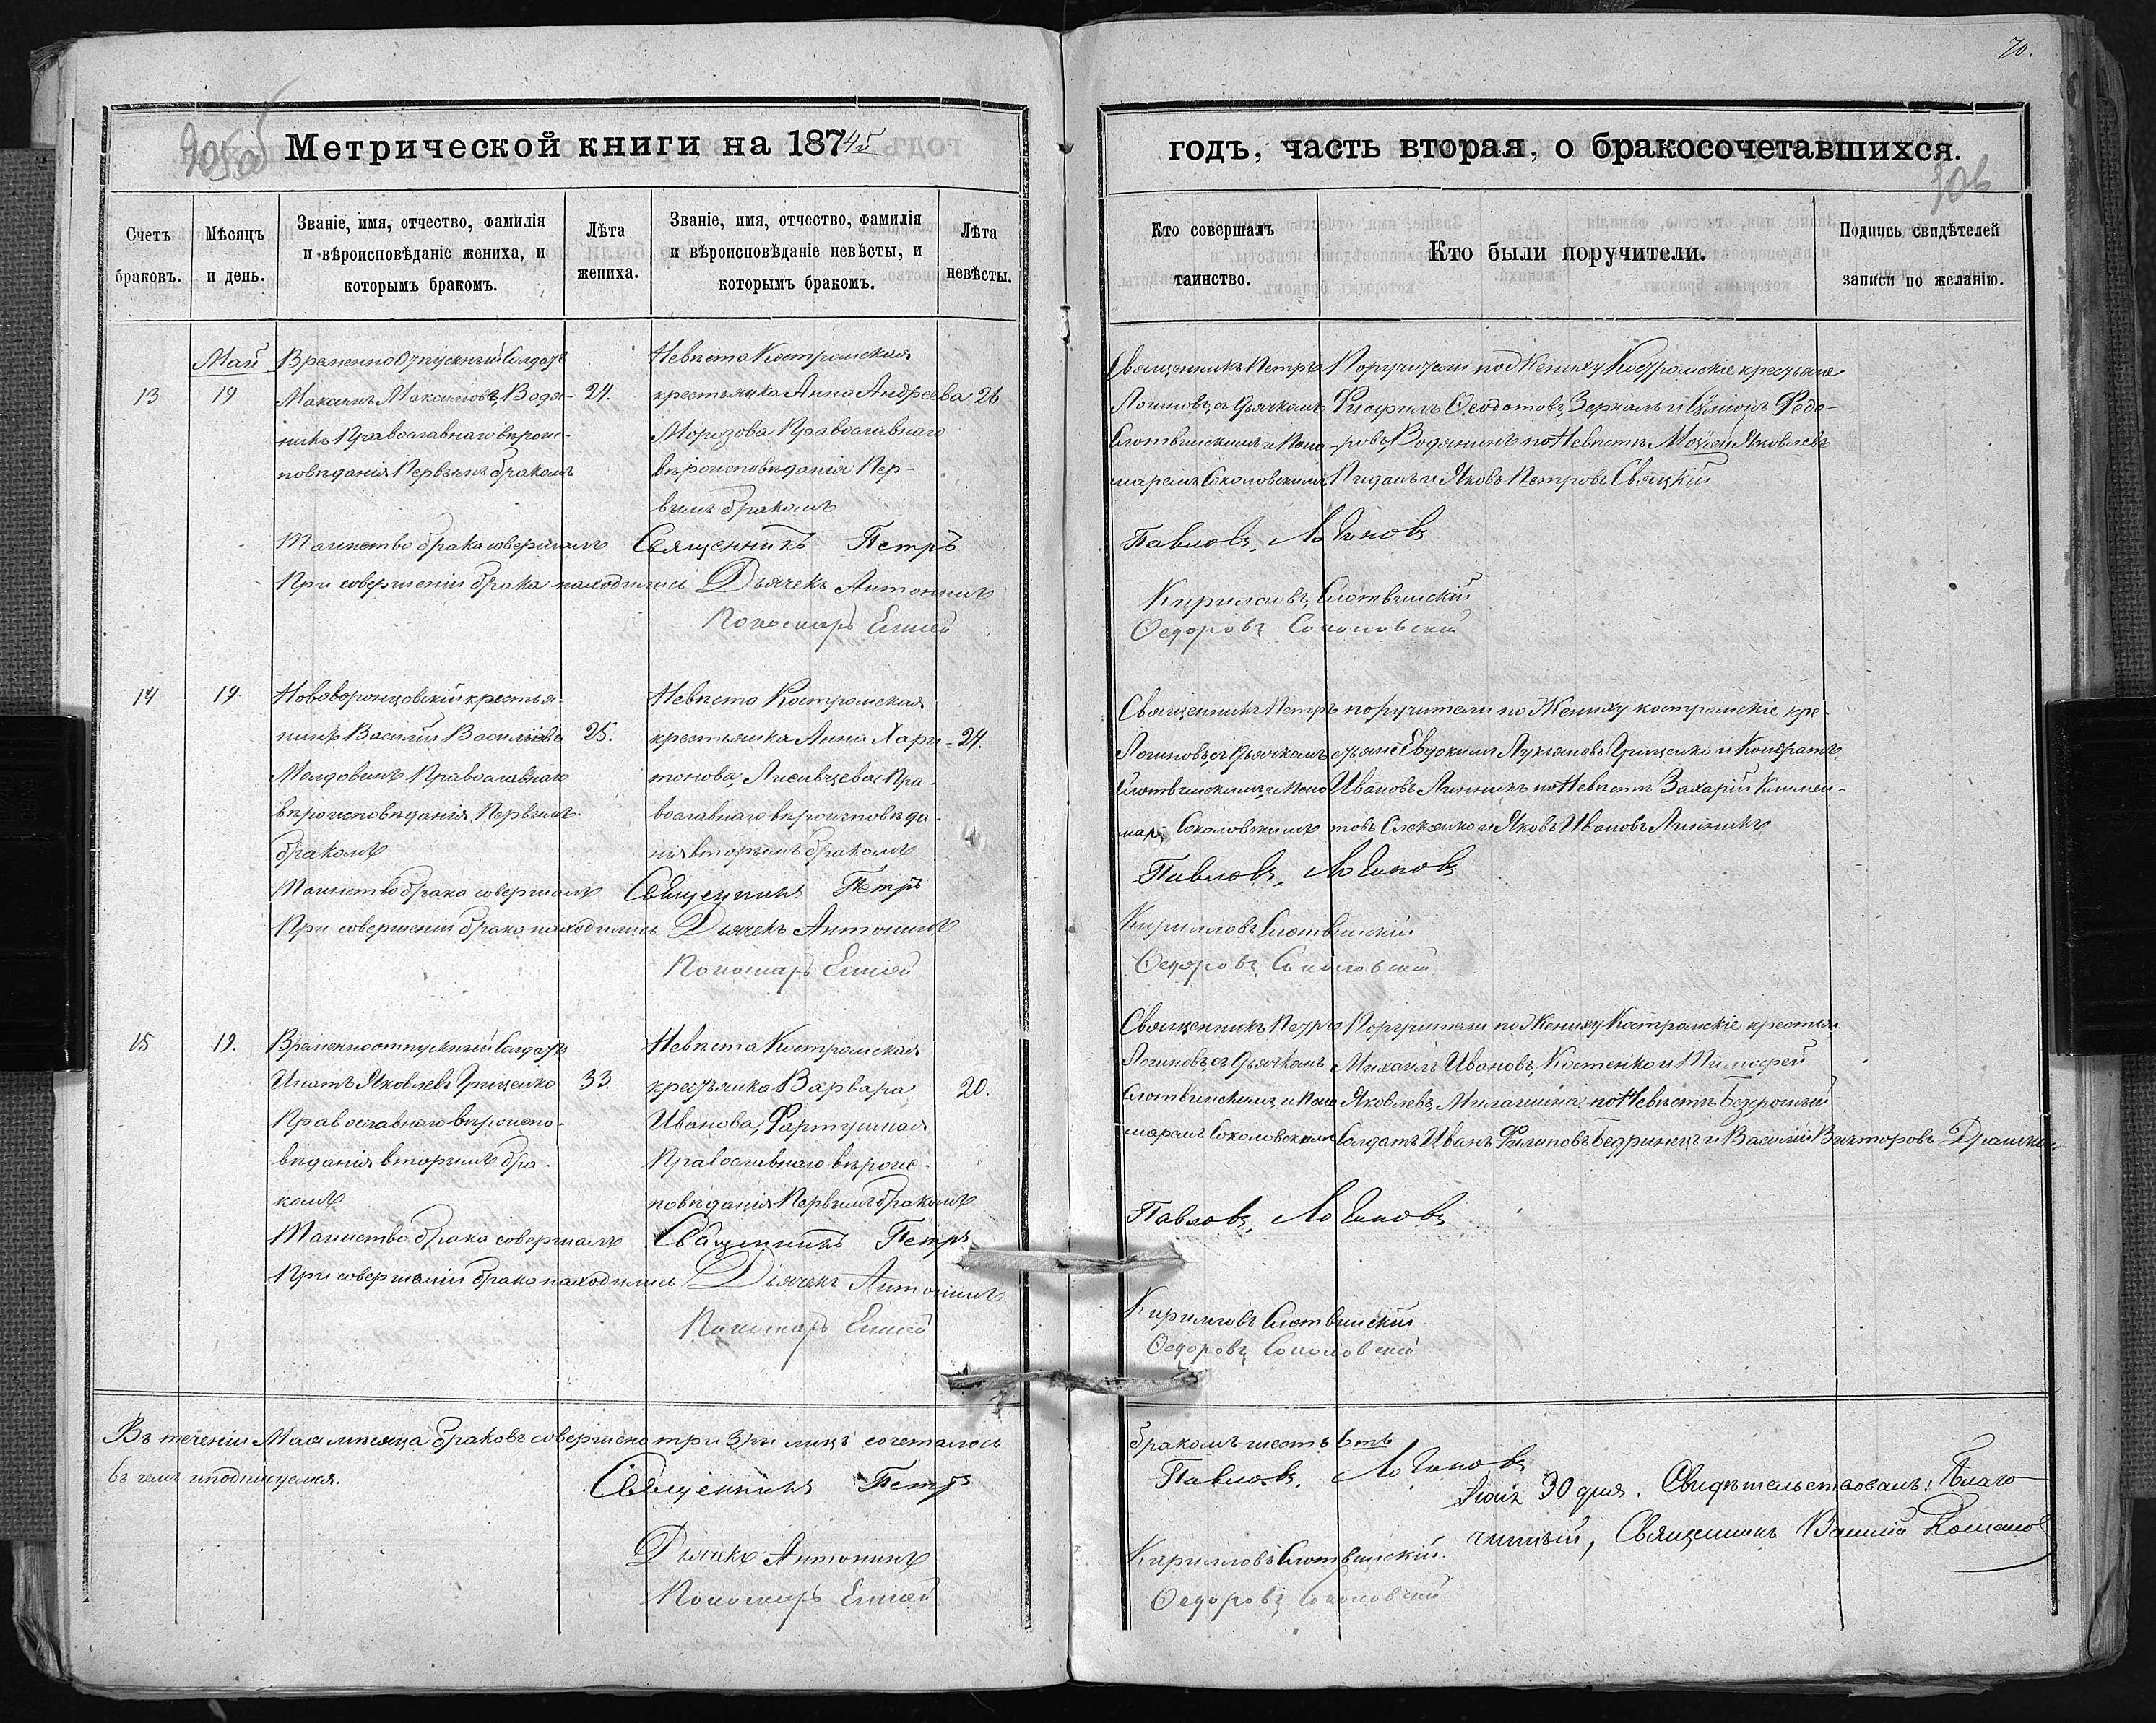 Метрической книги на 18745
Счетъ браковъ.
Мѣсяцъ и день.
Званіе, имя, отчество, фамилія
и вѣроисповѣданіе жениха, и
которымъ бракомъ.
Лѣта
жениха.
Званіе, имя, отчество, фамилія
и вѣроисповѣданіе невѣсты, и
которымъ бракомъ.
Лѣта
невѣсты.
Май
13
19
Временно Отпускный Солдатъ
Максимъ Максимовъ, Водя-
никъ Православнаго вѣроис-
повѣданія Первымъ бракомъ
24.
Невѣста Костромская
крестьянка Анна Андреева
Морозова Православнаго
вѣроисповѣданія Пер-
вымъ бракомъ
26
Таинство брака совершалъ Священникъ Петръ
При совершеніи брака находились Дьячекъ Антонинъ
Пономарь Елисей
14
19
Нововоронцовскій крестья-
нинъ Василій Васильевъ
Молдовинъ Православнаго
вѣроисповѣданія Первымъ
бракомъ
25.
Невѣста Костромская
крестьянка Анна Хари-
тонова, Лисивцева Пра-
вославнаго вѣроисповѣда-
нія вторымъ бракомъ
24.
Таинство брака совершалъ Священникъ Петръ
При совершеніи брака находились Дьячекъ Антонинъ
Пономарь Елисей
15
19.
Временноотпускный Солдатъ
Ипатъ Яковлевъ Гриценко
Православнаго вѣроиспо-
вѣданія вторымъ бра-
комъ
33.
Невѣста Костромская
крестьянка Варвара
Иванова, Фартушная
Православнаго вѣроис-
повѣданія Первымъ бракомъ
20.
Таинство брака совершалъ Священникъ Петръ
При совершеніи брака находились Дьячекъ Антонинъ
Пономарь Елисей
Въ теченіи Мая мѣсяца браковъ совершено три 3, лицъ сочеталось
въ чемъ и подписуемся.
Священникъ Петръ
Дьячекъ Антонинъ
Пономарь Елисей
70.
годъ, часть вторая, о бракосочетавшихся.
306
Кто совершалъ
таинство.
Кто были поручители.
Подпись свидѣтелей
записи по желанію.
Священникъ Петръ
Логиновъ, съ Дьячкомъ
Слотвинскимъ и Поно
маремъ Соколовскимъ
Поручители по Жениху Костромскіе крестьяне
Феофилъ Ѳеодотовъ, Зеркаль и Симонъ Федо-
ровъ, Водянинъ по Невѣстѣ Моисей Яковлевъ
Пидашъ и Яковъ Петровъ Свяцкій
Павловъ, Логиновъ
Кириловъ, Слотвинскій
Ѳедоровъ Соколовскій
Священникъ Петръ
Логиновъ, съ Дьячкомъ
Слотвинскимъ и Поно
марь Соколовскимъ
поручители по Жениху костромскіе кре-
стьяне Евдокимъ Лукьяновъ Гриценко и Кондратъ
Ивановъ Линникъ по Невѣстѣ Захарій Климен-
товъ Слюсенко и Яковъ Ивановъ Линникъ
Павловъ, Логиновъ
Кирилловъ Слотвинскій
Ѳедоровъ Соколовскій
Священникъ Петръ
Логиновъ съ Дьячкомъ
Слотвинскимъ и Поно
маремъ Соколовскимъ
Поручители по Жениху Костромскіе крестьян.
Михаилъ Ивановъ, Костенко и Тимофей
Яковлевъ, Милашина; по Невѣстѣ Безсрочный
Солдатъ Иванъ Филиповъ Бедринецъ и Василій Викторовъ
Павловъ, Логиновъ
Кирилловъ Слотвинскій
Ѳедоровъ Соколовскій
бракомъ шесть 6ть
Павловъ, Логиновъ
30 дня. Свидѣтельствовалъ: Благо
чинный, Священникъ Василій Романов
Кирилловъ Слотвинскій.
Ѳедоровъ Соколовскій